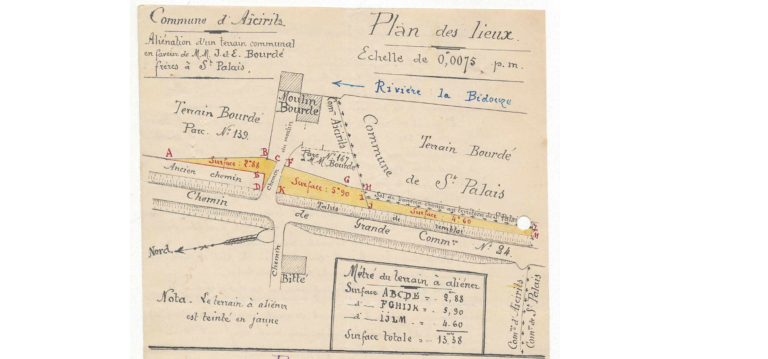 Commune d'Aïcirits
Aliénation d'un terrain communal
en faveur de M.M. J. et E. Bourdé
frères à St Palais.
Plan des lieux.
Echelle de 0,0075 p. m.
Rivière la Bidouze
Moulin
Bourdé
Terrain Bourdé
Parc. N° 139.
Comne Aïcirits
Commune
de St Palais
Terrain Bourdé
Parc. N° 147
M.M. Bourdé
Chemin du moulin
A
B
C
F
Surface : 2ª88
E
D
Ancien chemin
G
H
I
J
K
Surface : 5ª90
Surface : 4ª60
L
M
Talus de remblai
Chemin de Grande Common N° 24.
Nord.
Chemin
Bitté
Nota. Le terrain à aliéner
est teinté en jaune
Métré du terrain à aliéner
Surface ABCDE = 2,88
- d° - FGHIJK = 5,90
- d° - IJLM = 4.60
Surface totale = 13.38
Comne d'Aïcirits
Comne de St Palais